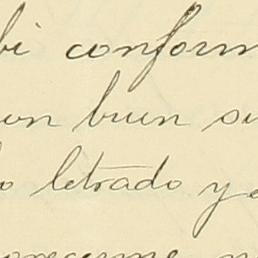 bi conform
on buen su
o letrado y e